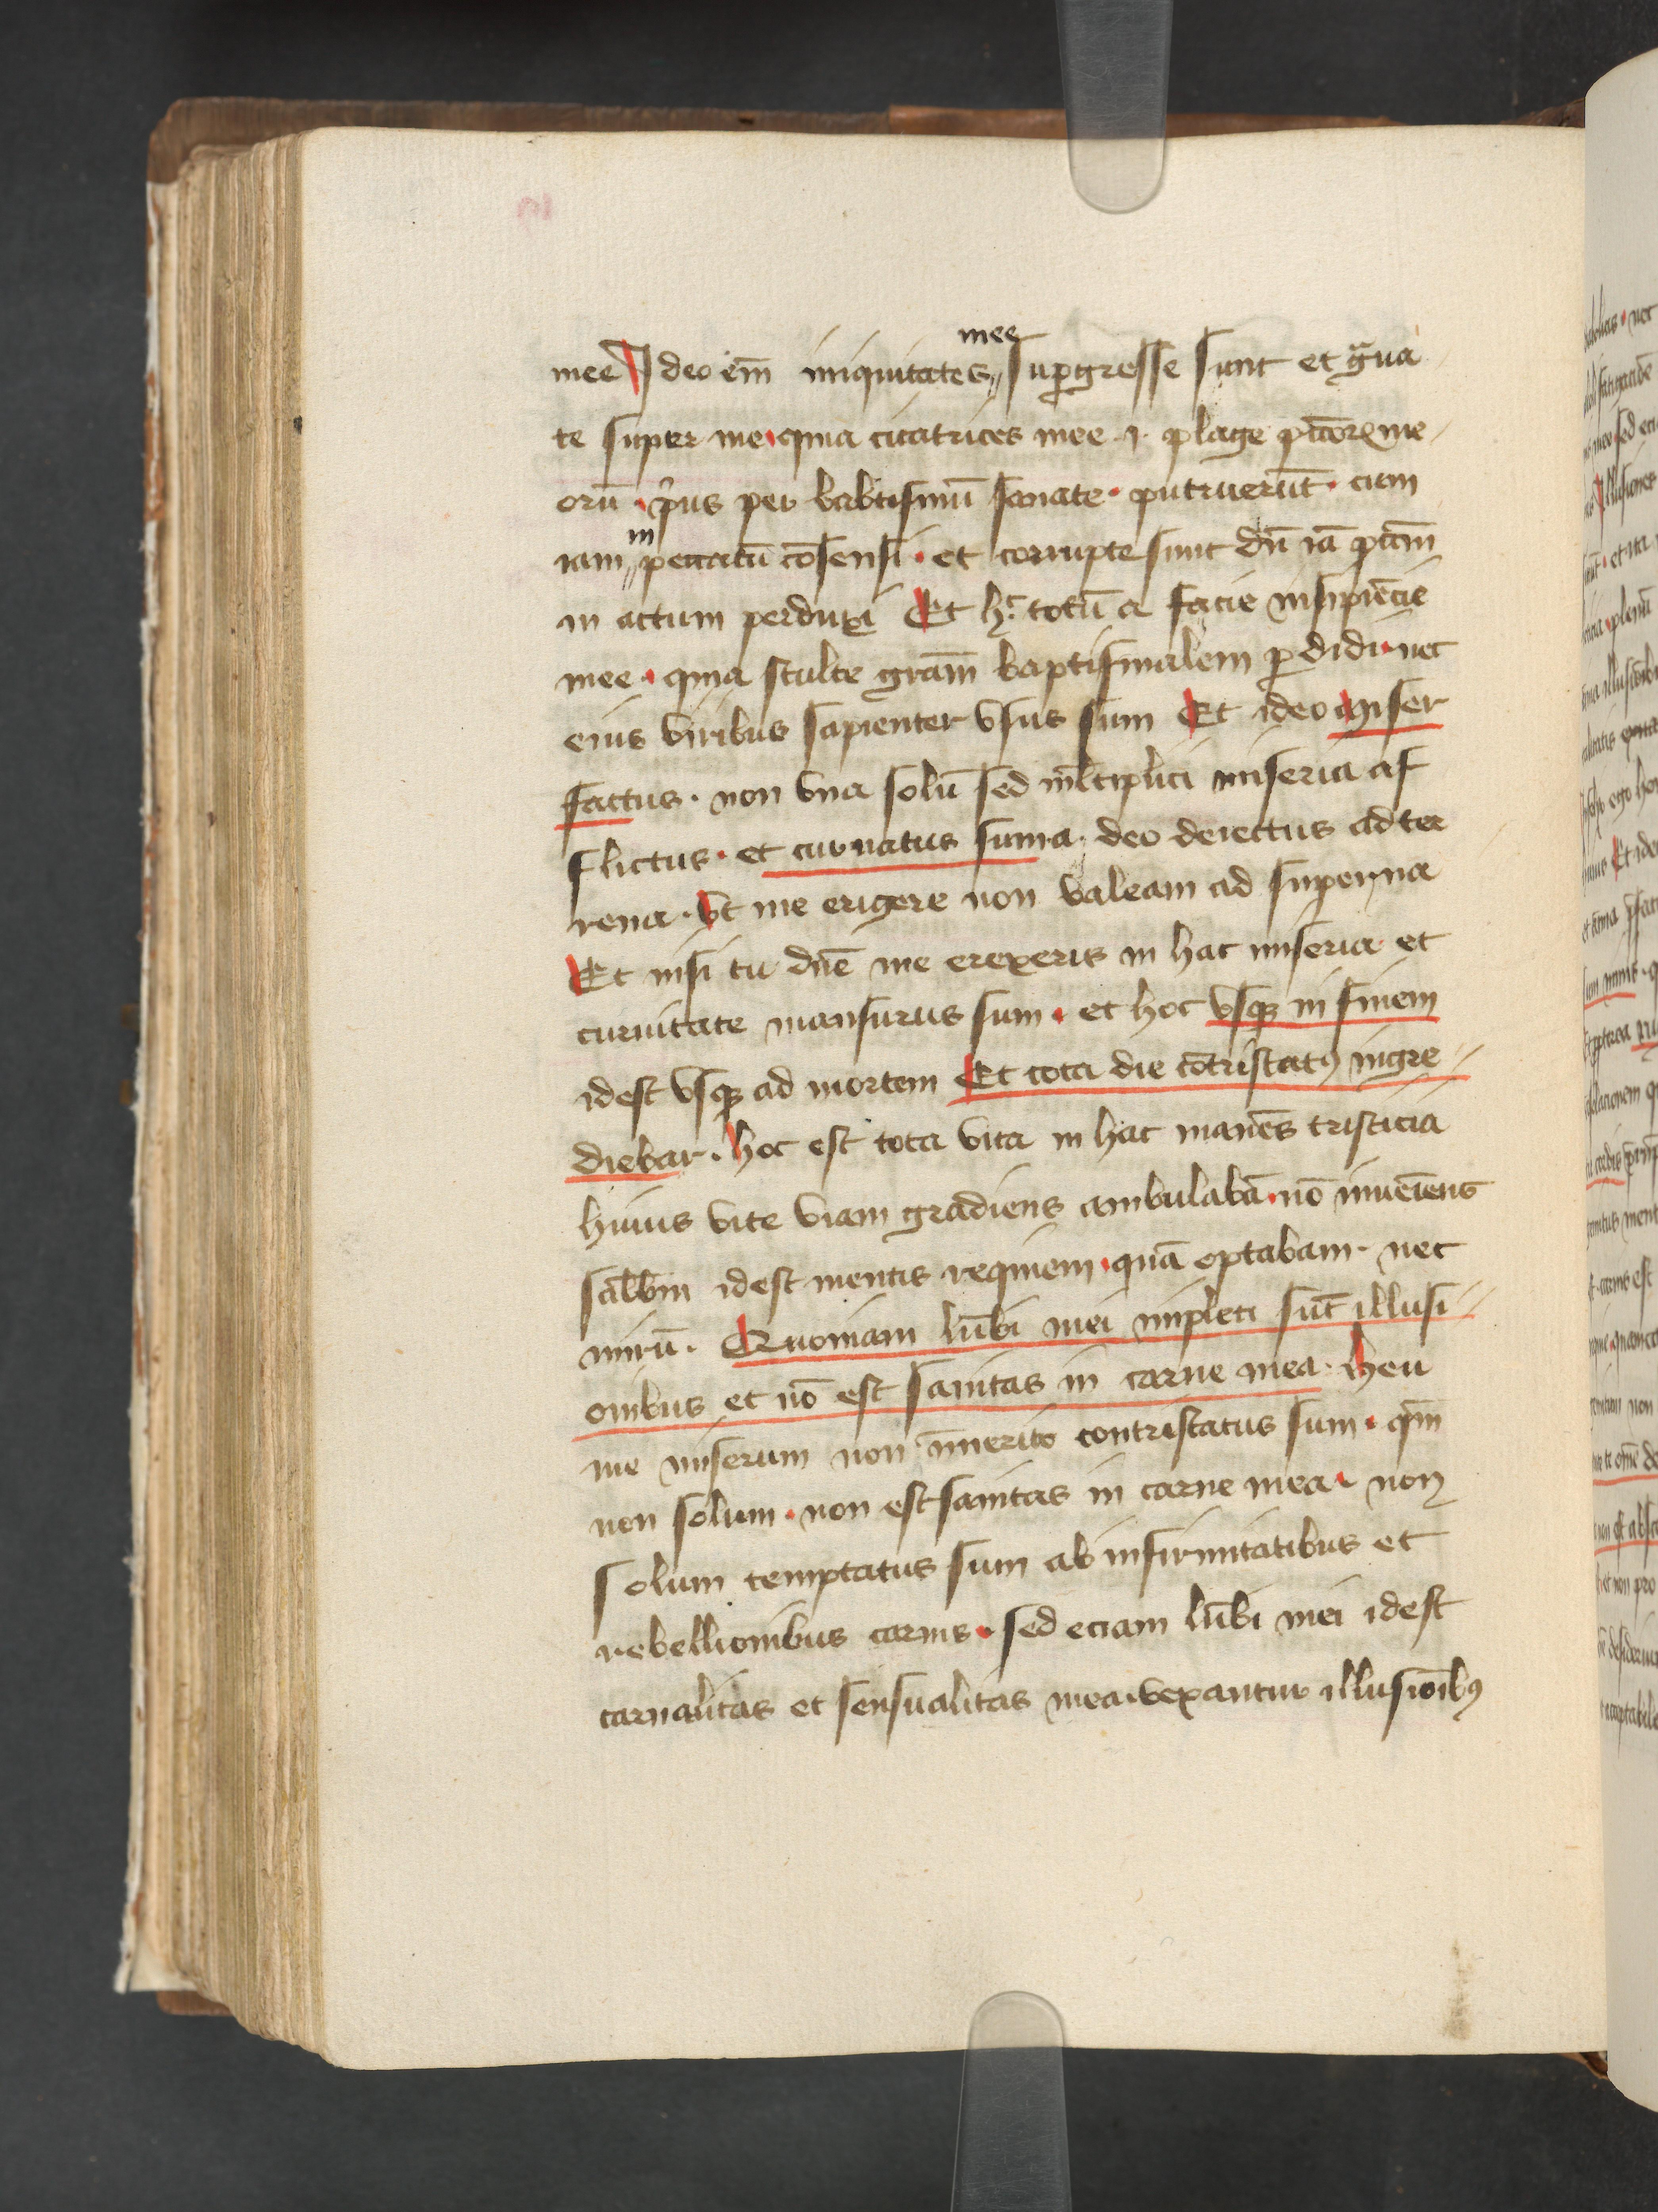 mee Ideo em̄ iniquitates mee suꝑgresse sunt et g̃ua
te super me · quia cicatrices mee .i. plage pcc̄orꝝ me
orū · p̓us per babtismū sanate · putruerūt · cum
iam in peccatū cōsensi · et corrupte sunt dū iā pcc̄m
in actum perduxi Et hͨ totū a facie insipiēcie
mee · quia stulte grām baptismalem ꝑdidi · nec
eius viribus sapienter vsus sum Et ideo Miser
factus · non vna solū sed ml̄tiplici miseria af
flictus · et curuatus sum a deo deiectus ad ter
rena · Vt me erigere non valeam ad superna
Et nisi tu dn̄e me erexeris in hac miseria et
curuitate mansurus sum · et hoc vsqꝫ in finem
idest vsqꝫ ad mortem Et tota die cōtristatꝰ ingre
diebar · hoc est tota vita in hac manēs tristicia
huius vite viam gradiens ambulabā · nō inueīens
sabb̄m idest mentis requiem · quā optabam · nec
mirū · Quoniam lūbi mei impleti sūt illusi
onibus et nō est sanitas in carne mea · heu
me miserum non īmerito contristatus sum · qm̄
non solum · non est sanitas in carne mea · non
solum temptatus sum ab infirmitatibus et
rebellionibus carnis · sed eciam lūbi mei idest
carnalitas et sensualitas mea · vexantur illusiōibꝰ